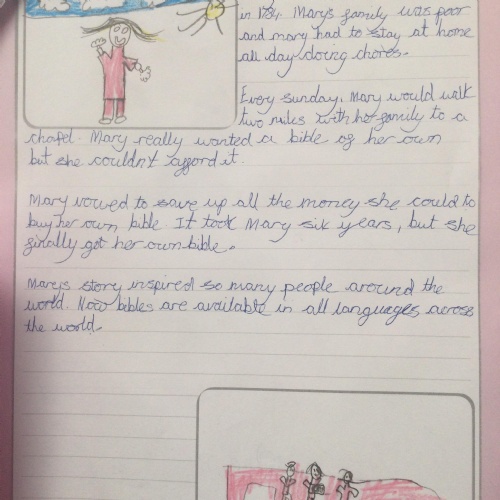 in 1784. Mary's family was poor
and mary had to stay at home
all day doing chores.
Every sunday, Mary would walk
two miles with her family to a
chapel. Mary really wanted a bible of her own
but she couldn't afford it.
Mary vowed to save up all the money she could to
buy her own bible. It took Mary six years, but she
finally got her own bible.
Marys story inspired so many people around the
world. Now bibles are available in all languages across
the world.